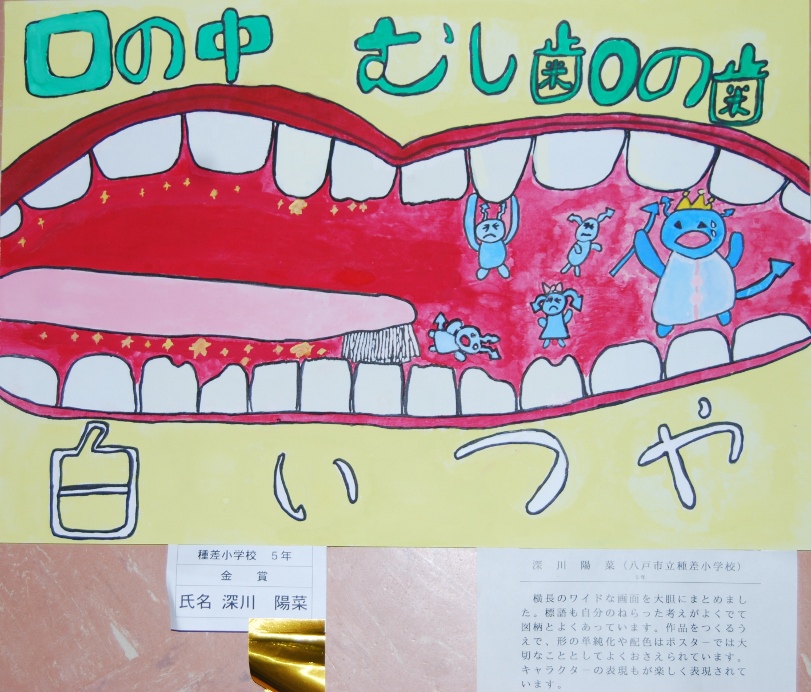 口の中 むし歯0の歯
白いつや
種差小学校 5年
金 賞
氏名 深川 陽菜
深 川 陽 菜（八戸市立種差小学校）
5年
横長のワイドな画面を大胆にまとめまし
た。標語も自分のねらった考えがよくでて
図柄とよくあっています。作品をつくるう
えで、形の単純化や配色はポスターでは大
切なこととしてよくおさえられています。
キャラクターの表現もが楽しく表現されて
います。